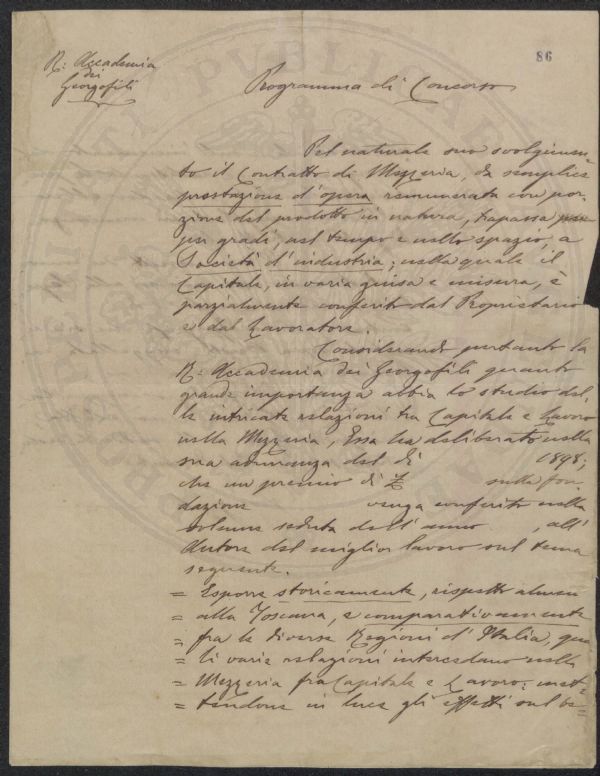 R: Accademia
dei
Georgofili
86
Programma di Concorso
Pel naturale suo svolgimen-
to il Contratto di Mezzeria, da semplice
prestazione d'opera remunerata con por-
zione del prodotto in natura, trapassa
per gradi, nel tempo e nello spazio, a
Società d'industria, nella quale il
Capitale, in varia guisa e misura, è
parzialmente conferito dal Proprietario
e dal Lavoratore.
Considerando pertanto la
R: Accademia dei Georgofili quanto
grande importanza abbia lo studio del-
le intricate relazioni tra Capitale e Lavoro
nella Mezzeria, Essa ha deliberato nella
sua adunanza del dì 1898;
che un premio di £ sulla fon-
dazione venga conferito nella
solenne seduta dell'anno , all'
Autore del miglior lavoro sul tema
seguente.
= Esporre storicamente, rispetto almen
= alla Toscana, e comparativamente
= fra le diverse Regioni d'Italia, qua
= li varie relazioni intercedano nella
= Mezzeria fra Capitale e Lavoro; met
= tendone in luce gli effetti sul be =